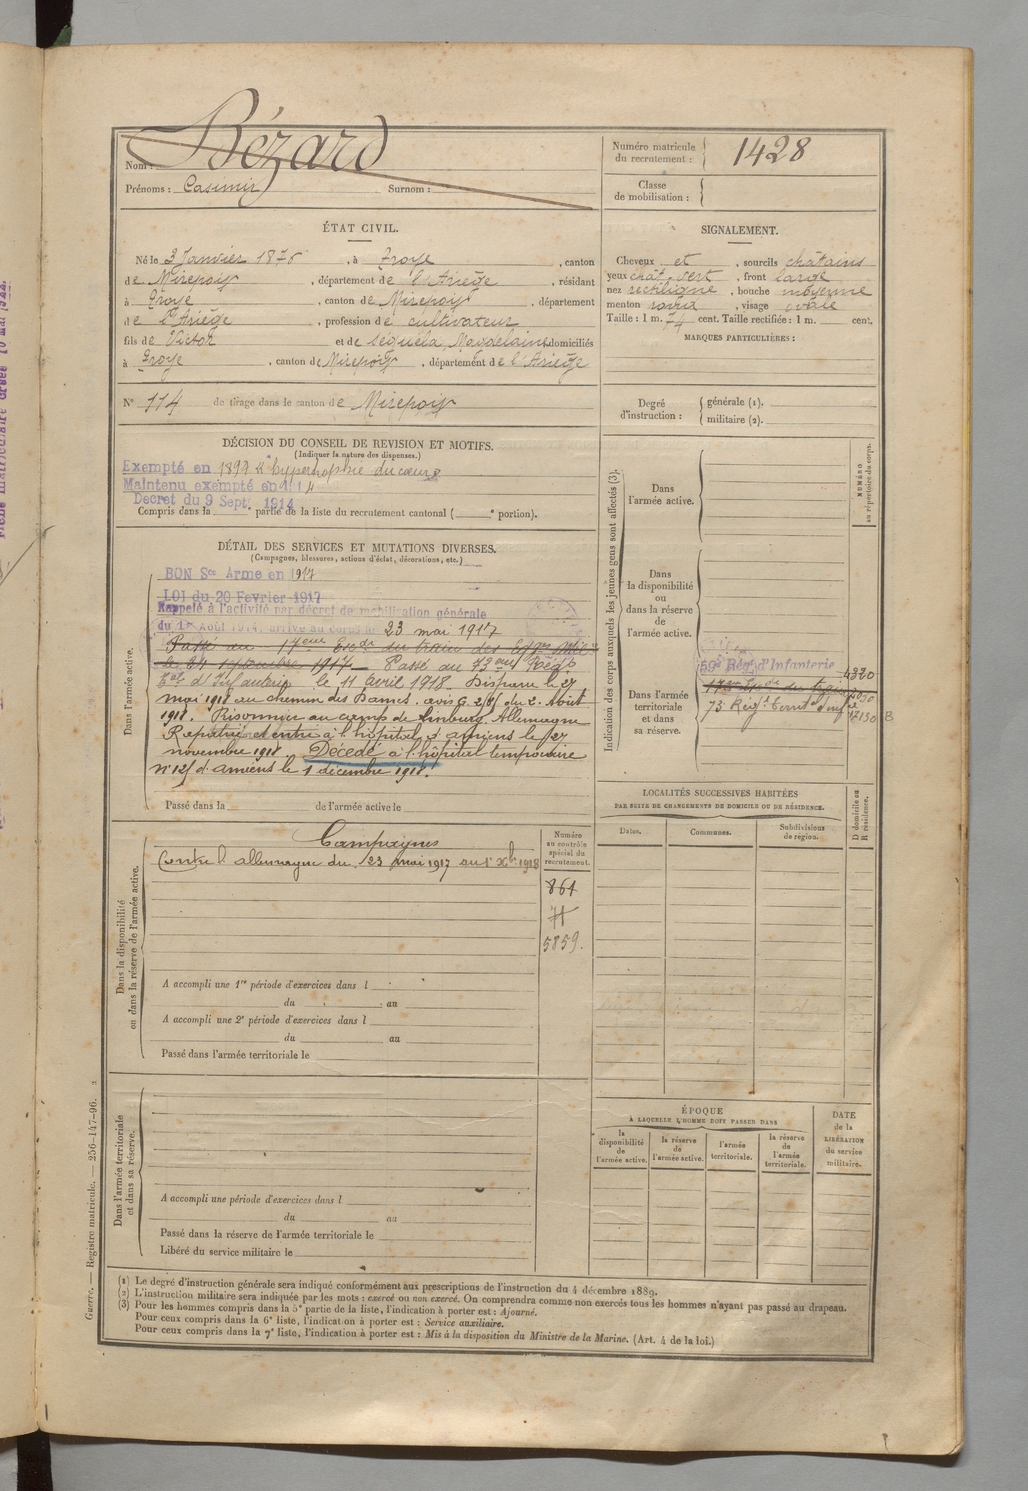 Bézard
Nom :
Prénoms : Casimir Surnom :
Numéro matricule du recrutement : 1428
Classe de mobilisation :
ÉTAT CIVIL.
Né le 3 Janvier 1876, à Troye, canton
de Mirepoix, département de l'Ariège, résidant
à Troye, canton de Mirepoix, département
de l'Ariège, profession de cultivateur
fils de Victor et de Séguéla, Magdelaine domiciliés
à Troye, canton de Mirepoix, département de l'Ariège
N° 114 de tirage dans le canton de Mirepoix
SIGNALEMENT.
Cheveux et, sourcils châtains
yeux chât. vert, front large
nez rectiligne, bouche moyenne
menton rond, visage ovale
Taille : 1 m. 74 cent. Taille rectifiée : 1 m. cent.
MARQUES PARTICULIÈRES :
Degré d'instruction : générale (1).
militaire (2).
DÉCISION DU CONSEIL DE REVISION ET MOTIFS.
(Indiquer la nature des dispenses.)
Exempté en 1897 hypertrophie du cœur
Maintenu exempté en 1914
Decret du 9 Sept. 1914
Compris dans la partie de la liste du recrutement cantonal ( e portion).
DÉTAIL DES SERVICES ET MUTATIONS DIVERSES.
(Campagnes, blessures, actions d'éclat, décorations, etc.)
Dans l'armée active.
BON Sce Armé en 1917
LOI du 20 Fevrier 1917
Rappelé à l'activité par décret de mobilisation générale
du 1er Août 1914, arrivé au corps le 23 mai 1917
Passé au 17eme Escon du train des Eqges Milit.
le 24 septembre 1917 Passé au 73eme Regt
Tal d'Infanterie le 11 Avril 1918. Disparu le 27
mai 1918 au chemin des Dames. avis du 2. Août
1918. Prisonnier au camp de Limburg Allemagne
Repatrié et entré à l'hôpital d'amiens le 27
novembre 1918. Décédé à l'hôpital temporaire
n° 12 d'amiens le 1 décembre 1918.
Passé dans la de l'armée active le
Indication des corps auxquels les jeunes gens sont affectés (3).
NUMÉRO au répertoire du corps.
Dans l'armée active.
Dans la disponibilité ou dans la réserve de l'armée active.
Dans l'armée territoriale et dans sa réserve.
59e Régt d'Infanterie 4320
17e Escon du train
73 Régt Territ d'infie 17150 B
LOCALITÉS SUCCESSIVES HABITÉES
PAR SUITE DE CHANGEMENTS DE DOMICILE OU DE RÉSIDENCE.
D domicile ou R résidence.
Dates. Communes. Subdivisions de région.
Dans la disponibilité ou dans la réserve de l'armée active.
Campagnes
Contre l'allemagne du 23 mai 1917 au 1er Xbre 1918
Numéro au contrôle spécial du recrutement.
864
71
5859.
A accompli une 1re période d'exercices dans l
du au
A accompli une 2e période d'exercices dans l
du au
Passé dans l'armée territoriale le
Dans l'armée territoriale et dans sa réserve.
A accompli une période d'exercices dans l
du au
Passé dans la réserve de l'armée territoriale le
Libéré du service militaire le
ÉPOQUE
À LAQUELLE L'HOMME DOIT PASSER DANS
la disponibilité de l'armée active.
la réserve de l'armée active.
l'armée territoriale.
la réserve de l'armée territoriale.
DATE de la LIBÉRATION du service militaire.
(1) Le degré d'instruction générale sera indiqué conformément aux prescriptions de l'instruction du 4 décembre 1889.
(2) L'instruction militaire sera indiquée par les mots : exercé ou non exercé. On comprendra comme non exercés tous les hommes n'ayant pas passé au drapeau.
(3) Pour les hommes compris dans la 5e partie de la liste, l'indication à porter est : Ajourné.
Pour ceux compris dans la 6e liste, l'indication à porter est : Service auxiliaire.
Pour ceux compris dans la 7e liste, l'indication à porter est : Mis à la disposition du Ministre de la Marine. (Art. 4 de la loi.)
Guerre. — Registre matricule. — 256-147-96.